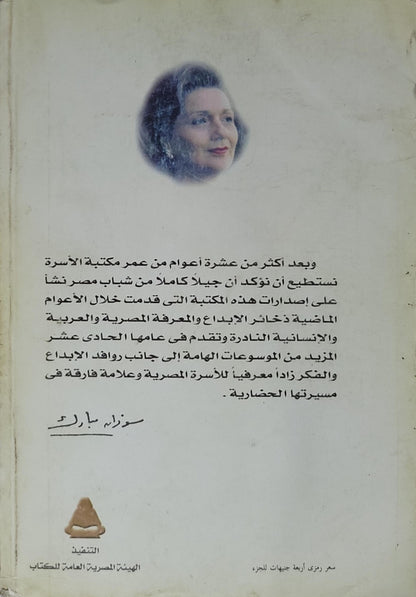 وبعد أكثر من عشرة أعوام من عمر مكتبة الأسرة
نستطيع أن نؤكد أن جيلاً كاملاً من شباب مصر نشأ
على إصدارات هذه المكتبة التى قدمت خلال الأعوام
الماضية ذخائر الإبداع والمعرفة المصرية والعربية
والإنسانية النادرة وتقدم فى عامها الحادى عشر
المزيد من الموسوعات الهامة إلى جانب روافد الإبداع
والفكر زاداً معرفياً للأسرة المصرية وعلامة فارقة فى
مسيرتها الحضارية .
سوزان مبارك
التنفيذ
الهيئة المصرية العامة للكتاب
سعر رمزى أربعة جنيهات للجزء